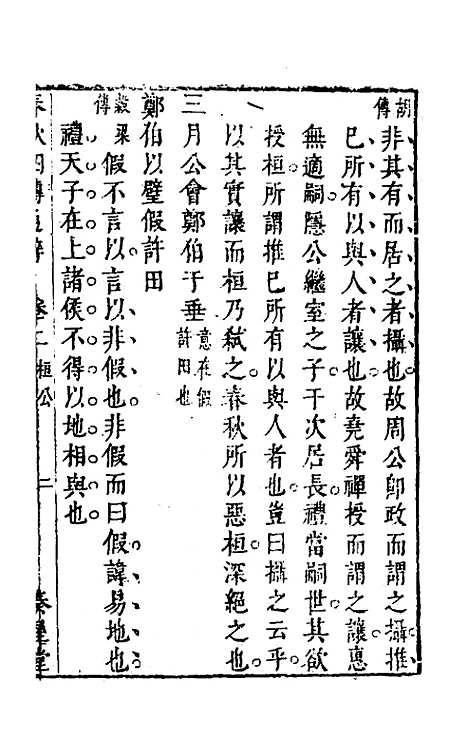 胡傳 非其有而居之者攝也故周公卽政而謂之攝推
已所有以與人者讓也故堯舜禪授而謂之讓惠
無適嗣隱公繼室之子于次居長禮當嗣世其欲
授桓所謂推已所有以與人者也豈曰攝之云乎
以其實讓而桓乃弑之春秋所以惡桓深絕之也
三月公會鄭伯于垂 意在假許田也
鄭伯以璧假許田
穀梁傳 假不言以言以非假也非假而曰假諱易地也
禮天子在上諸侯不得以地相與也
春秋四傳 卷二 桓公 二